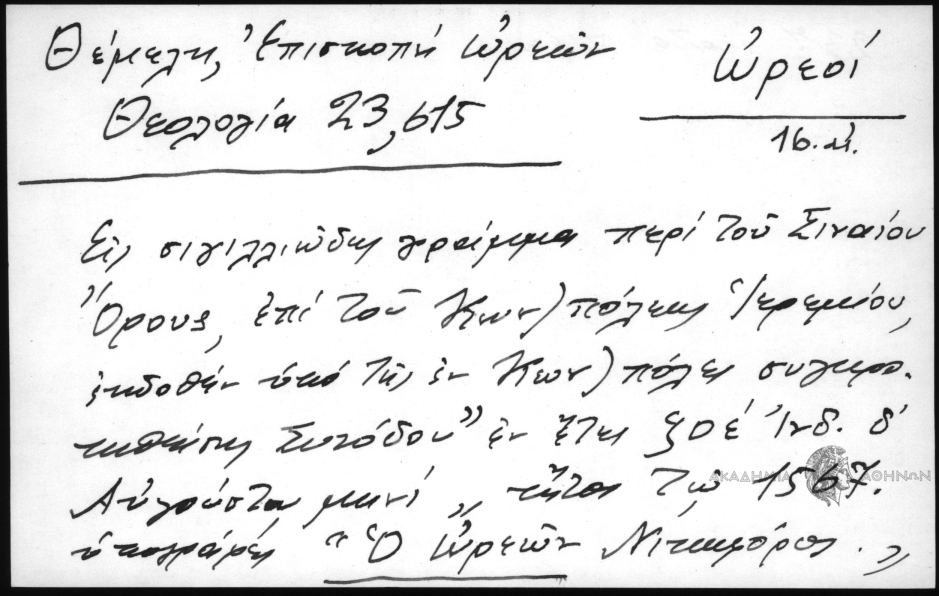 Θέμελη, Ἐπισκοπή Ὠρεῶν
Θεολογία 23,615
Ὠρεοί
16. μ.
Εἰς σιγιλλιῶδες γράμμα περί τοῦ Σιναίου
Ὄρους, ἐπί τοῦ Κων)πόλεως Ἱερεμίου,
ἐκδοθέν ὑπό τῆς ἐν Κων)πόλει συγκρο-
τηθείσης Συνόδου" ἐν ἔτει ζοέ Ἰνδ. δ'
Αὐγούστου μηνί „ ἤτοι τῷ 1567.
ὑπογράφει "Ὁ Ὠρεῶν Νικηφόρος. „
ΑΚΑΔΗΜΙΑ ΑΘΗΝΩΝ